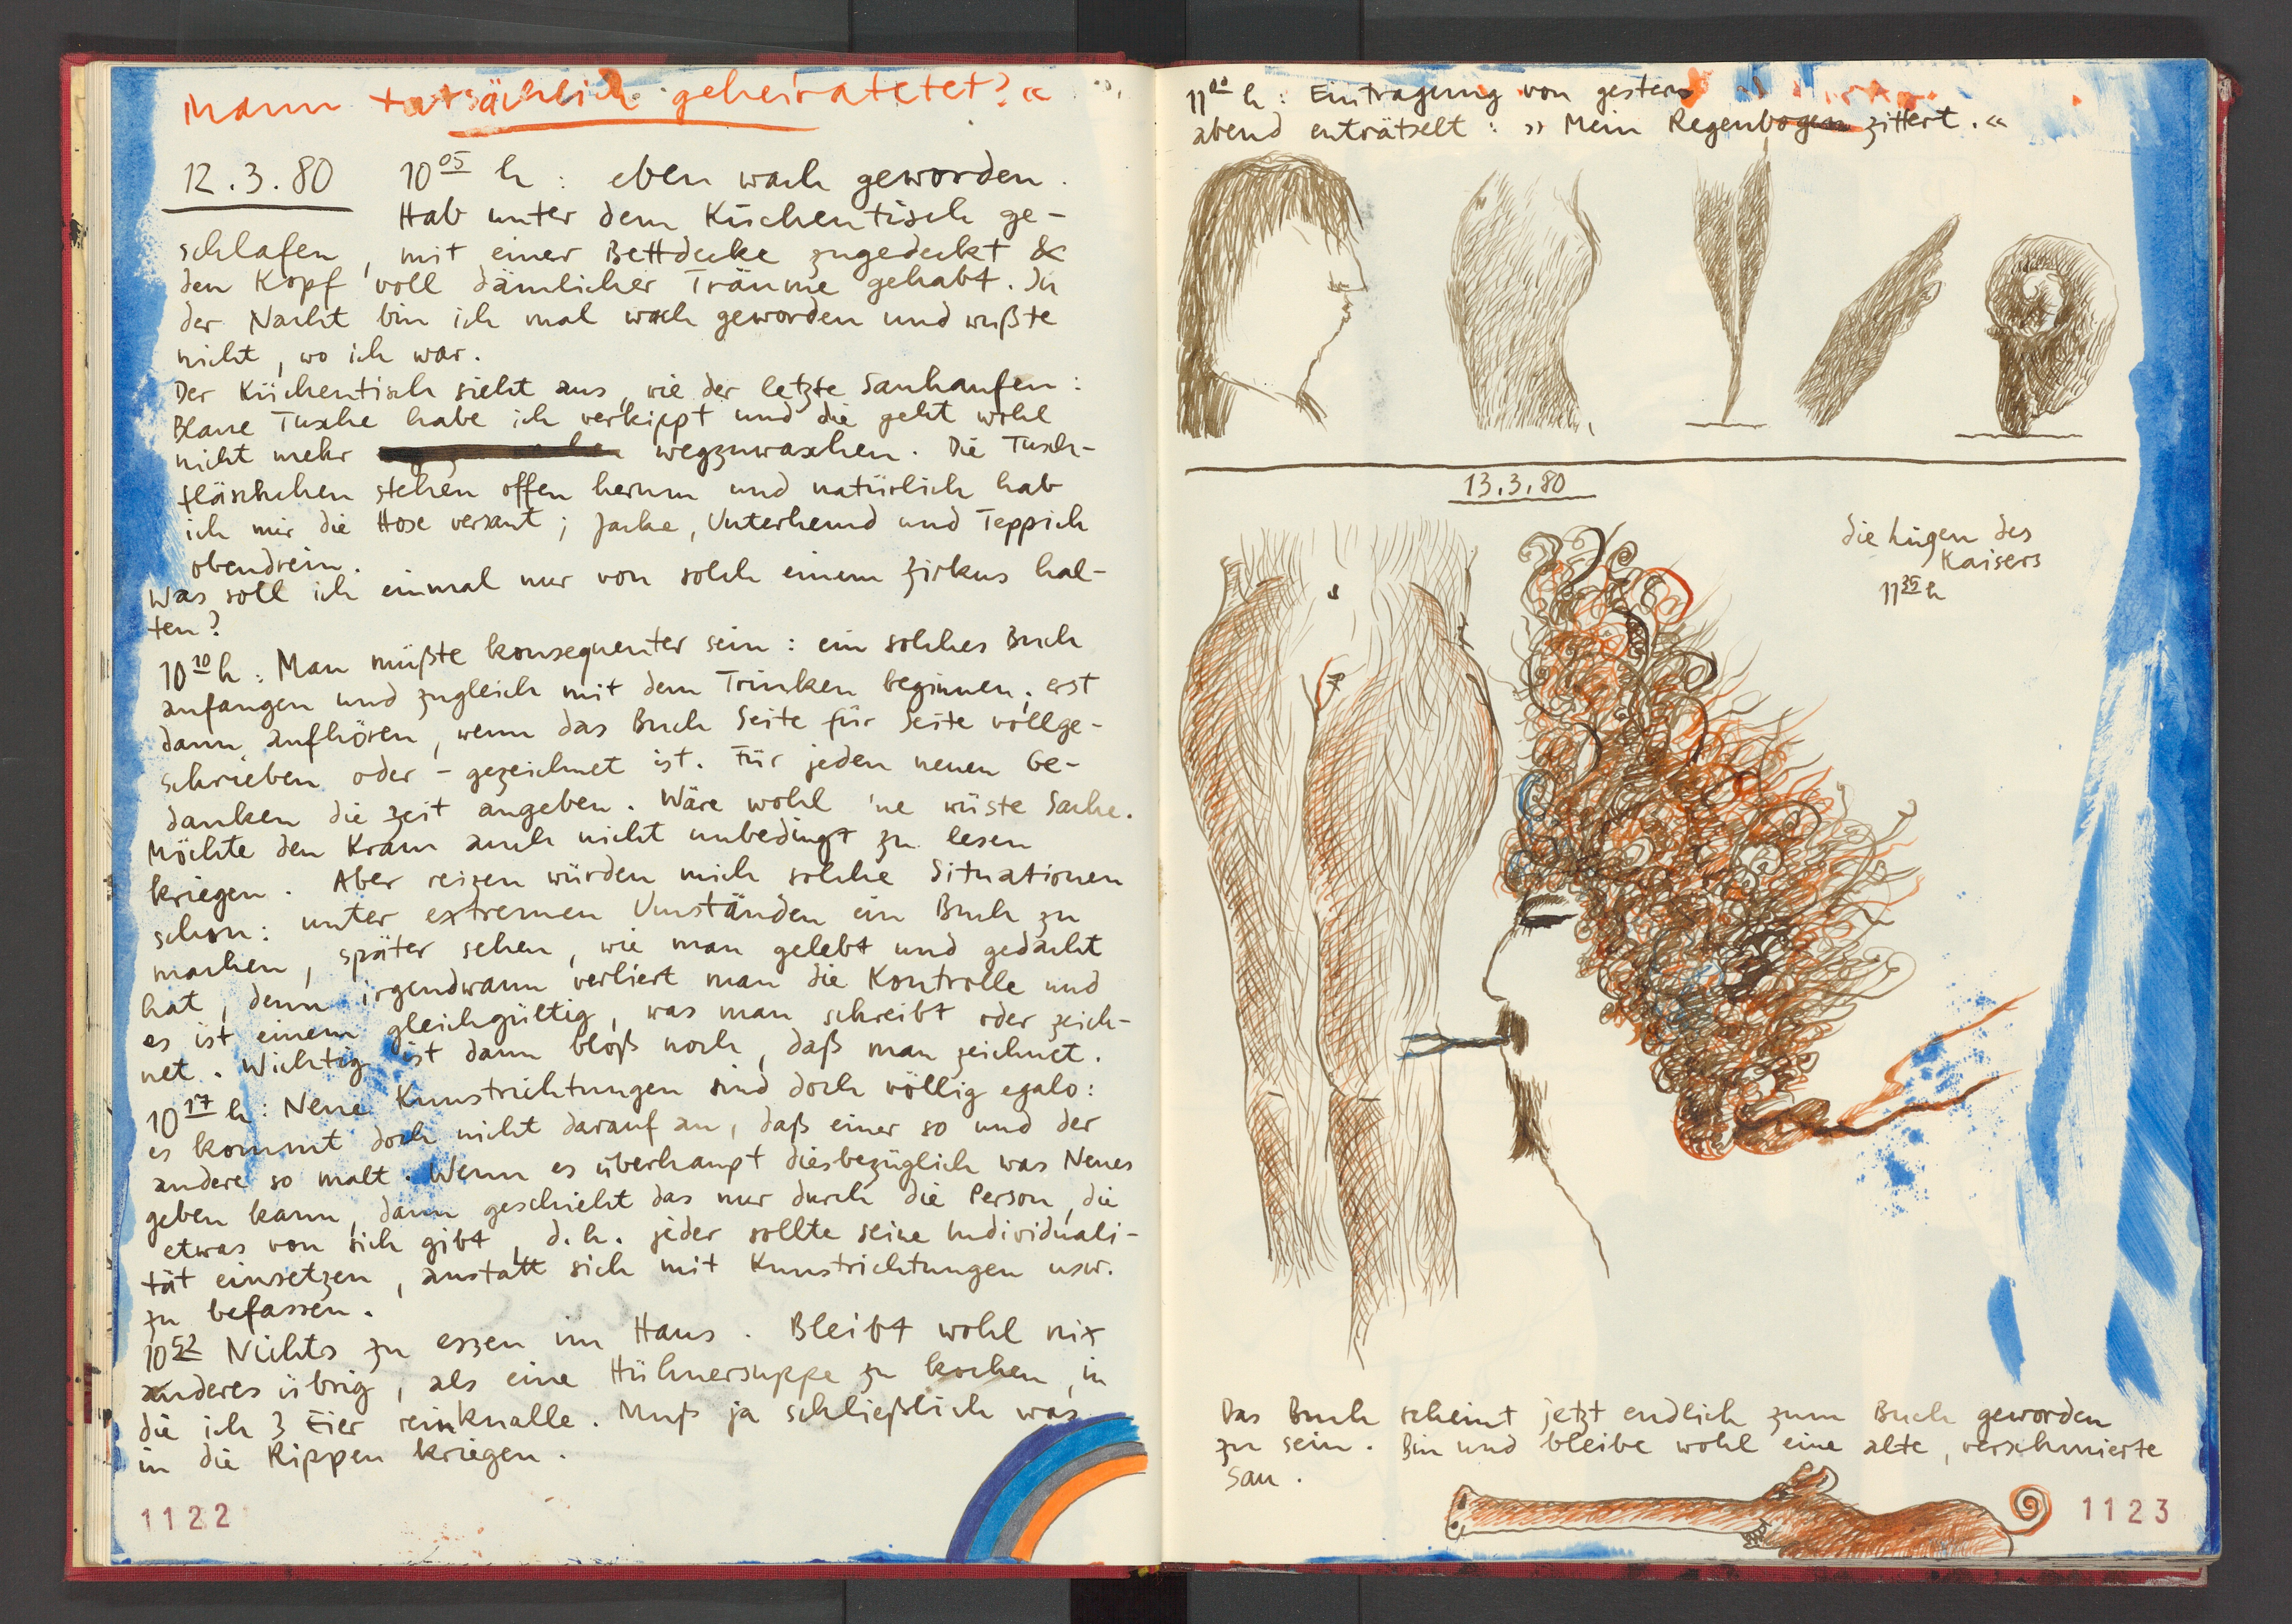 Mann tatsächlich geheiratetet?«
12.3.80 10 05 h : eben wach geworden.
Hab unter dem Küchentisch ge-
schlafen, mit einer Bettdecke zugedeckt &
den Kopf voll dämlicher Träume gehabt. In
der Nacht bin ich mal wach geworden und wußte
nicht, wo ich war.
Der Küchentisch sieht aus, wie der letzte Sauhaufen:
Blaue Tusche habe ich verkippt und die geht wohl
nicht mehr wegzuwaschen. Die Tusch-
fläschchen stehen offen herum und natürlich hab
ich mir die Hose versaut; Jacke, Unterhemd und Teppich
obendrein.
Was soll ich einmal nur von solch einem Zirkus hal-
ten?
10 10 h : Man müßte konsequenter sein: ein solches Buch
anfangen und zugleich mit dem Trinken beginnen; erst
dann aufhören, wenn das Buch Seite für Seite vollge-
schrieben oder -gezeichnet ist. Für jeden neuen Ge-
danken die Zeit angeben. Wäre wohl 'ne wüste Sache.
Möchte den Kram auch nicht unbedingt zu lesen
kriegen. Aber reizen würden mich solche Situationen
schon: unter extremen Umständen ein Buch zu
machen, später sehen, wie man gelebt und gedacht
hat, denn irgendwann verliert man die Kontrolle und
es ist einem gleichgültig, was man schreibt oder zeich-
net. Wichtig ist dann bloß noch, daß man zeichnet.
10 17 h: Neue Kunstrichtungen sind doch völlig egalo:
es kommt doch nicht darauf an, daß einer so und der
andere so malt. Wenn es überhaupt diesbezüglich was Neues
geben kann, dann geschieht das nur durch die Person, die
etwas von sich gibt, d.h. jeder sollte seine Individuali-
tät einsetzen, anstatt sich mit Kunstrichtungen usw.
zu befassen.
10 52 Nichts zu essen im Haus. Bleibt wohl nix
anderes übrig, als eine Hühnersuppe zu kochen, in
die ich 3 Eier reinknalle. Muß ja schließlich was
in die Rippen kriegen.
1122
11 00 h : Eintragung von gestern
abend enträtselt : »Mein Regenbogen zittert.«
13.3.80
die Lügen des
Kaisers
11 35 h
Das Buch scheint jetzt endlich zum Buch geworden
zu sein. Bin und bleibe wohl eine alte, verschmierte
Sau.
1123